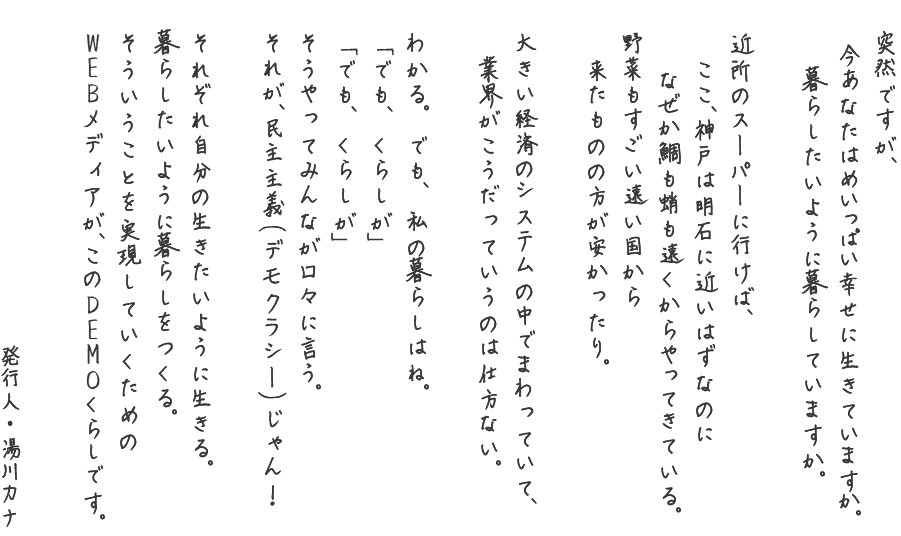 突然ですが、
今あなたはめいっぱい幸せに生きていますか。
暮らしたいように暮らしていますか。
近所のスーパーに行けば、
ここ、神戸は明石に近いはずなのに
なぜか鯛も蛸も遠くからやってきている。
野菜もすごい遠い国から
来たものの方が安かったり。
大きい経済のシステムの中でまわっていて、
業界がこうだっていうのは仕方ない。
わかる。でも、私の暮らしはね。
「でも、くらしが」
「でも、くらしが」
そうやってみんなが口々に言う。
それが、民主主義(デモクラシー)じゃん！
それぞれ自分の生きたいように生きる。
暮らしたいように暮らしをつくる。
そういうことを実現していくための
WEBメディアが、このDEMOくらしです。
発行人・湯川カナ